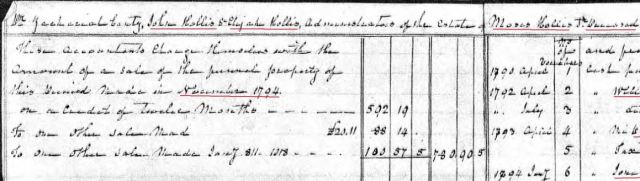 John Hollis & Elijah Hollis, Administrators of the Estate of Moses Hollis Sr Deceased
These Accountants Charge themselves with the
amount of a sale of the personal property of
this Deceased Made in November 1794.
on a Credit of twelve Months 592 19
To one other sale Mad £20.11 88 14
To one other sale Made Jany 1818 100 57 5 780 90 5
No of Vouchers and
1790 April 1 Cash
1792 April 2 "
" July 3 "
1793 April 4 "
5 "
1794 Jany 6 "